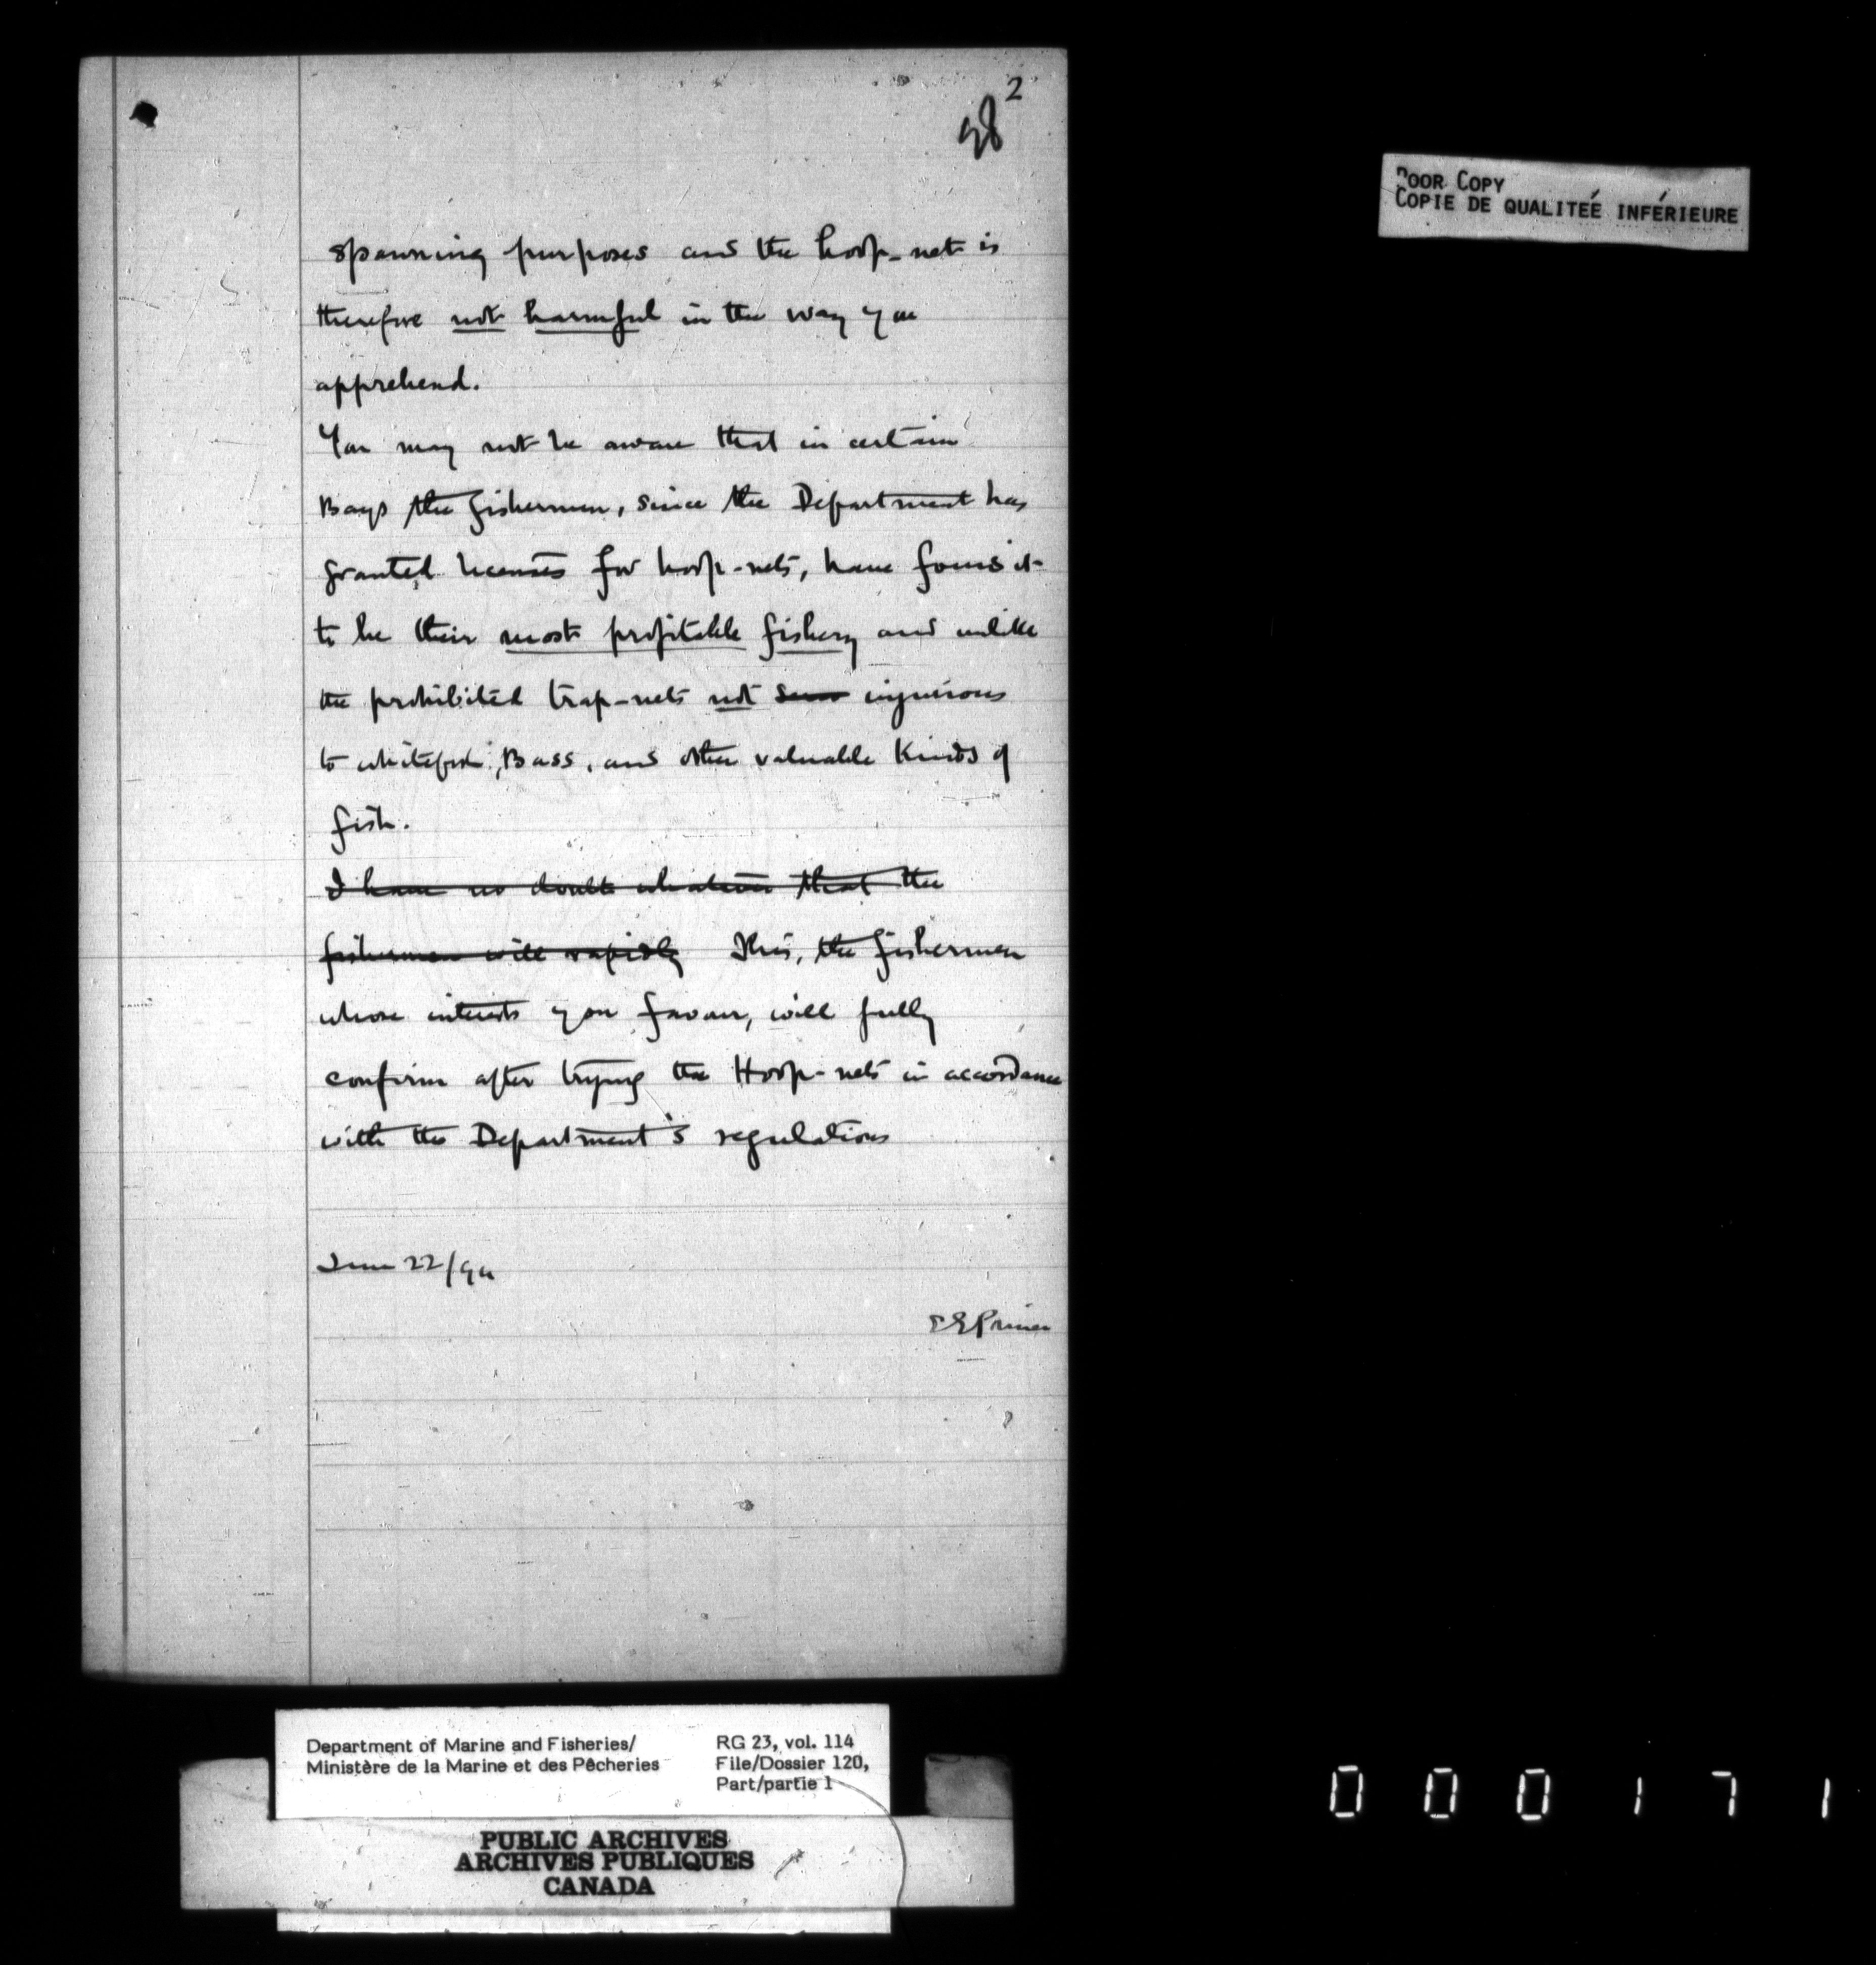 2
98
spawning purposes and the hoop-net is
therefore not harmful in the way you
apprehend.
You may not be aware that in certain
Bays the fishermen, since the Department has
granted licenses for hoop-nets, have found it
to be their most profitable fishery and unlike
the prohibited trap-nets not injurious
to whitefish, Bass, and other valuable Kinds of
fish.
I have no doubt whatever that the
fishermen will rapidly This, the fishermen
whose interests you favour, will fully
confirm after trying the Hoop-nets in accordance
with the Department's regulations
June 22/94
E E Prince
POOR COPY
COPIE DE QUALITEÉ INFÉRIEURE
Department of Marine and Fisheries/
Ministère de la Marine et des Pêcheries
RG 23, vol. 114
File/Dossier 120,
Part/partie 1
PUBLIC ARCHIVES
ARCHIVES PUBLIQUES
CANADA
000171